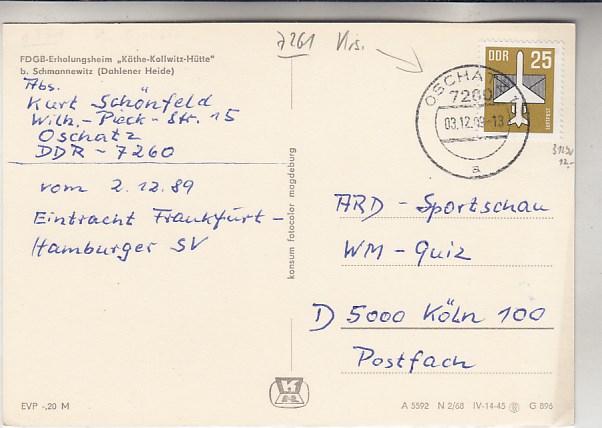 7261 Krs.
FDGB-Erholungsheim „Käthe-Kollwitz-Hütte"
b. Schmannewitz (Dahlener Heide)
Abs.
Kurt Schönfeld
Wilh.-Pieck-Str. 15
Oschatz
DDR-7260
vom 2.12.89
Eintracht Frankfurt-
Hamburger SV
DDR 25
LUFTPOST
OSCHATZ
7260
03.12.89-13
a
konsum fotocolor magdeburg
ARD-Sportschau
WM-Quiz
D 5000 Köln 100
Postfach
EVP -,20 M
A 5592 N 2/68 IV-14-45 G 896